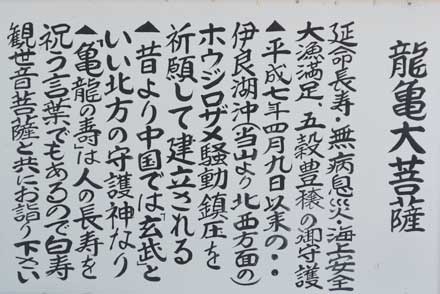 龍亀大菩薩
延命長寿・無病息災・海上安全
大漁満足、五穀豊穣の御守護
▲平成七年四月九日以来の・・
伊良湖沖(当山より北西方面の)
ホウジロザメ騒動鎮圧を
祈願して建立される
▲昔より中国では「玄武」と
いい北方の守護神なり
▲「亀龍の寿」は人の長寿を
祝う言葉でもあるので白寿
観世音菩薩と共にお詣り下さい